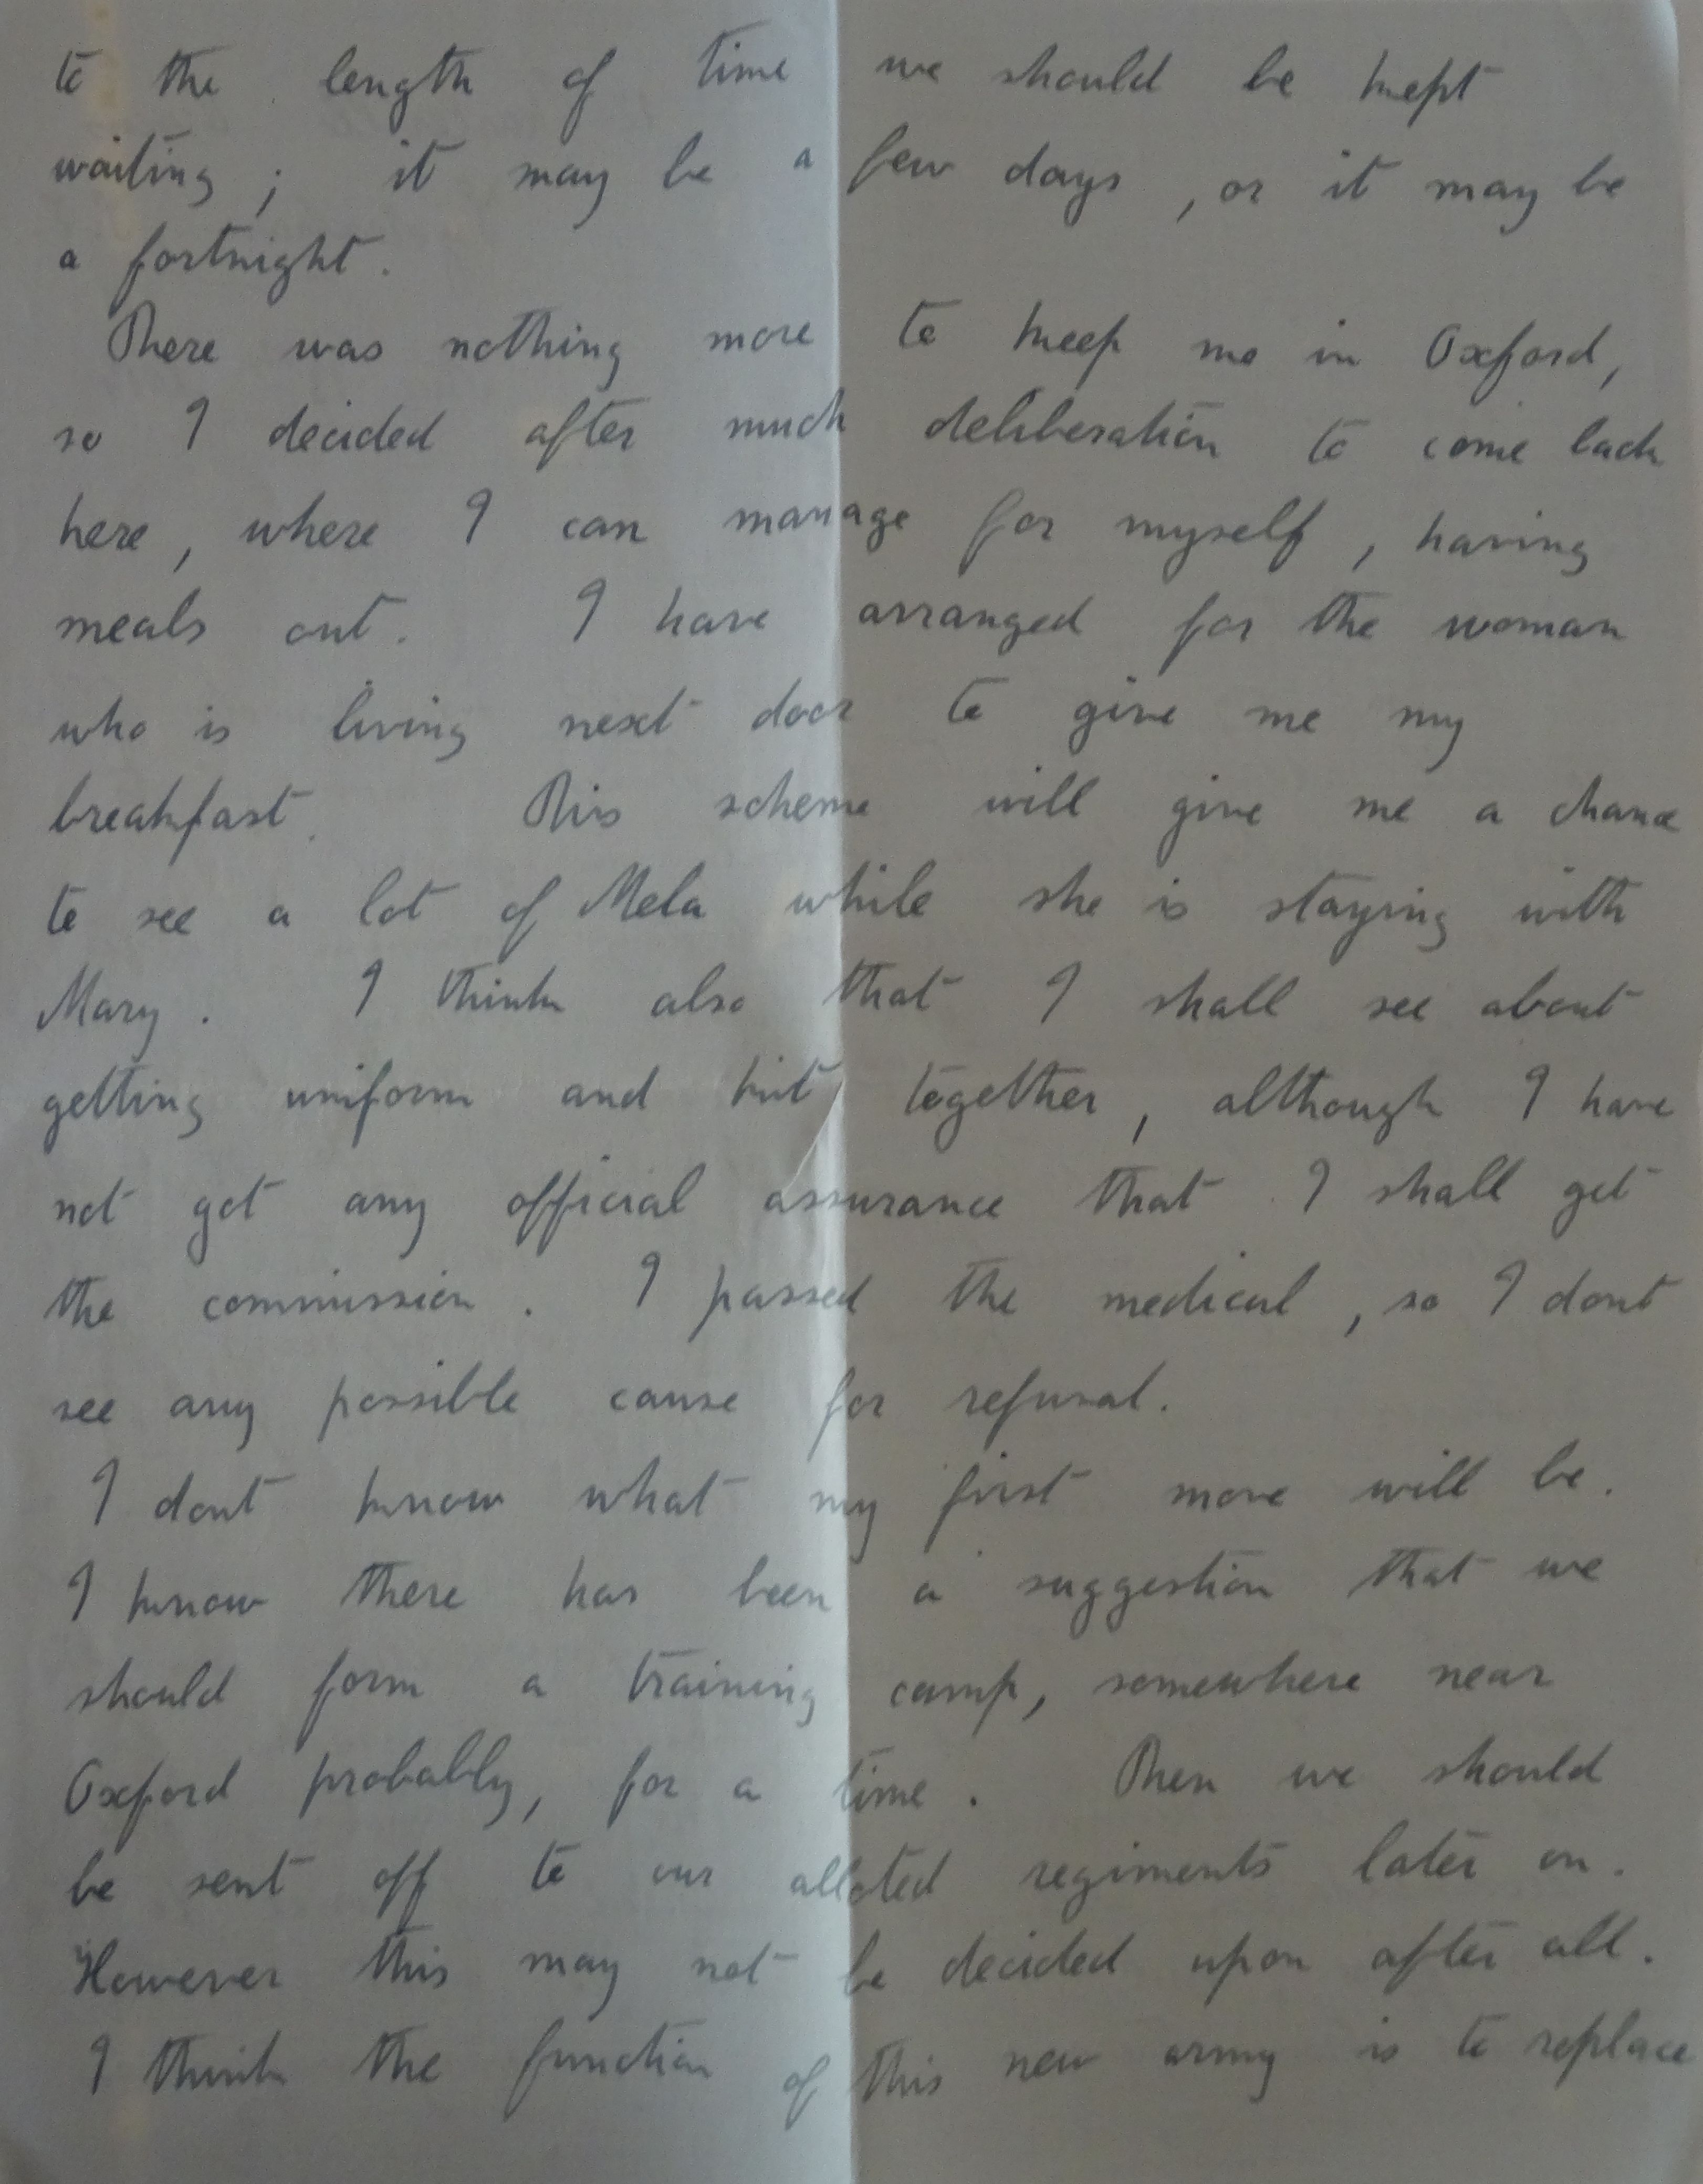 to the length of time we should be kept
waiting ; it may be a few days , or it may be
a fortnight .
There was nothing more to keep me in Oxford,
so I decided after much deliberation to come back
here , where I can manage for myself , having
meals out . I have arranged for the woman
who is living next door to give me my
breakfast . This scheme will give me a chance
to see a lot of Mela while she is staying with
Mary . I think also that I shall see about
getting uniform and kit together , although I have
not got any official assurance that I shall get
the commission . I passed the medical , so I dont
see any possible cause for refusal .
I dont know what my first move will be .
I know there has been a suggestion that we
should form a training camp, somewhere near
Oxford probably, for a time . Then we should
be sent off to our alloted regiments later on .
However this may not be decided upon after all .
I think the function of this new army is to replace